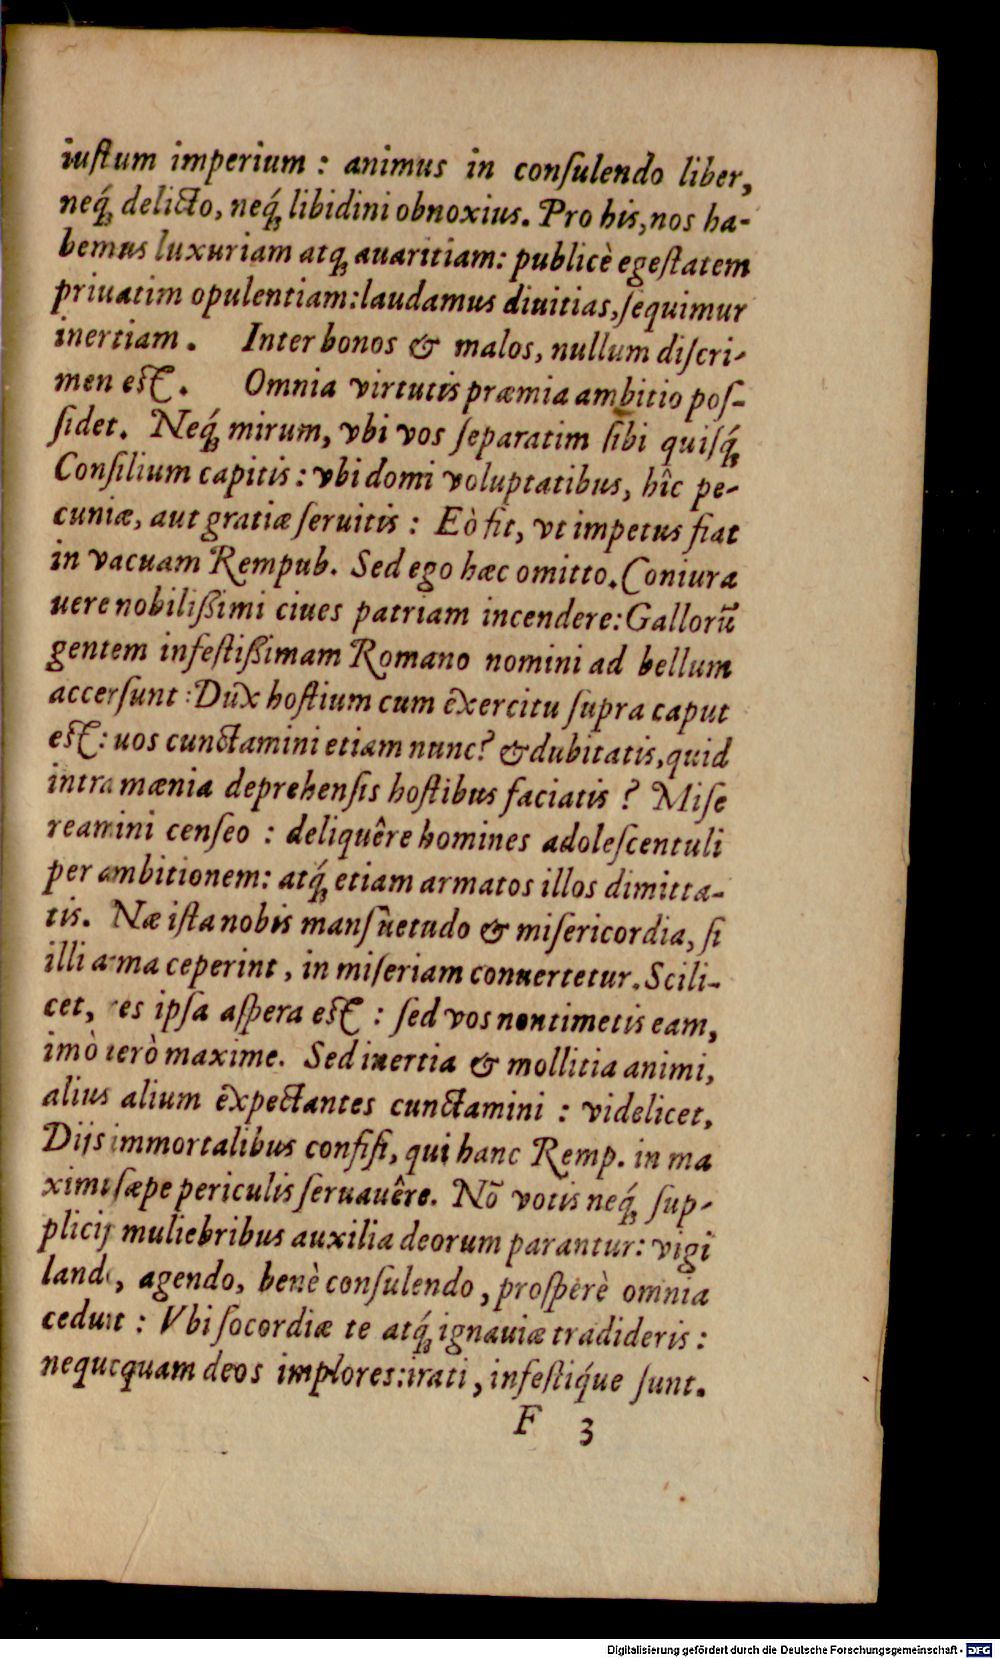 iuſtum imperium : animus in conſulendo liber,
neq́ꝫ delicto, neq́ꝫ libidini obnoxius. Pro his, nos ha-
bemus luxuriam atqꝫ auaritiam: publicè egeſtatem
priuatim opulentiam: laudamus diuitias, ſequimur
inertiam. Inter bonos & malos, nullum diſcri-
men est. Omnia virtutis præmia ambitio poſ-
ſidet. Neq́ꝫ mirum, vbi vos ſeparatim ſibi quiſq́ꝫ
Conſilium capitis: vbi domi voluptatibus, hîc pe-
cuniæ, aut gratiæ ſeruitis : Eò fit, vt impetus fiat
in vacuam Rempub. Sed ego hæc omitto. Coniura
uere nobilißimi ciues patriam incendere: Gallorū
gentem infeſtißimam Romano nomini ad bellum
accerſunt : Dux hoſtium cum exercitu ſupra caput
est: uos cunctamini etiam nunc? & dubitatis, quid
intra mænia deprehenſis hoſtibus faciatis ? Miſe
reamini cenſeo : deliquêre homines adoleſcentuli
per ambitionem: atq́ꝫ etiam armatos illos dimitta-
tis. Næ iſta nobis manſuetudo & miſericordia, ſi
illi arma ceperint, in miſeriam conuertetur. Scili-
cet, res ipſa aſpera est : ſed vos non timetis eam,
imò verò maxime. Sed inertia & mollitia animi,
alius alium expectantes cunctamini : videlicet,
Dijs immortalibus confiſi, qui hanc Remp. in ma
ximis ſæpe periculis ſeruauêre. Nō votis neq́ꝫ ſup-
plicijs muliebribus auxilia deorum parantur: vigi
lando, agendo, benè conſulendo, proſperè omnia
cedunt : Vbi ſocordiæ te atq́ꝫ ignauiæ tradideris :
nequicquam deos implores: irati, infeſtiq́ue ſunt.
F 3
Digitalisierung gefördert durch die Deutsche Forschungsgemeinschaft - DFG